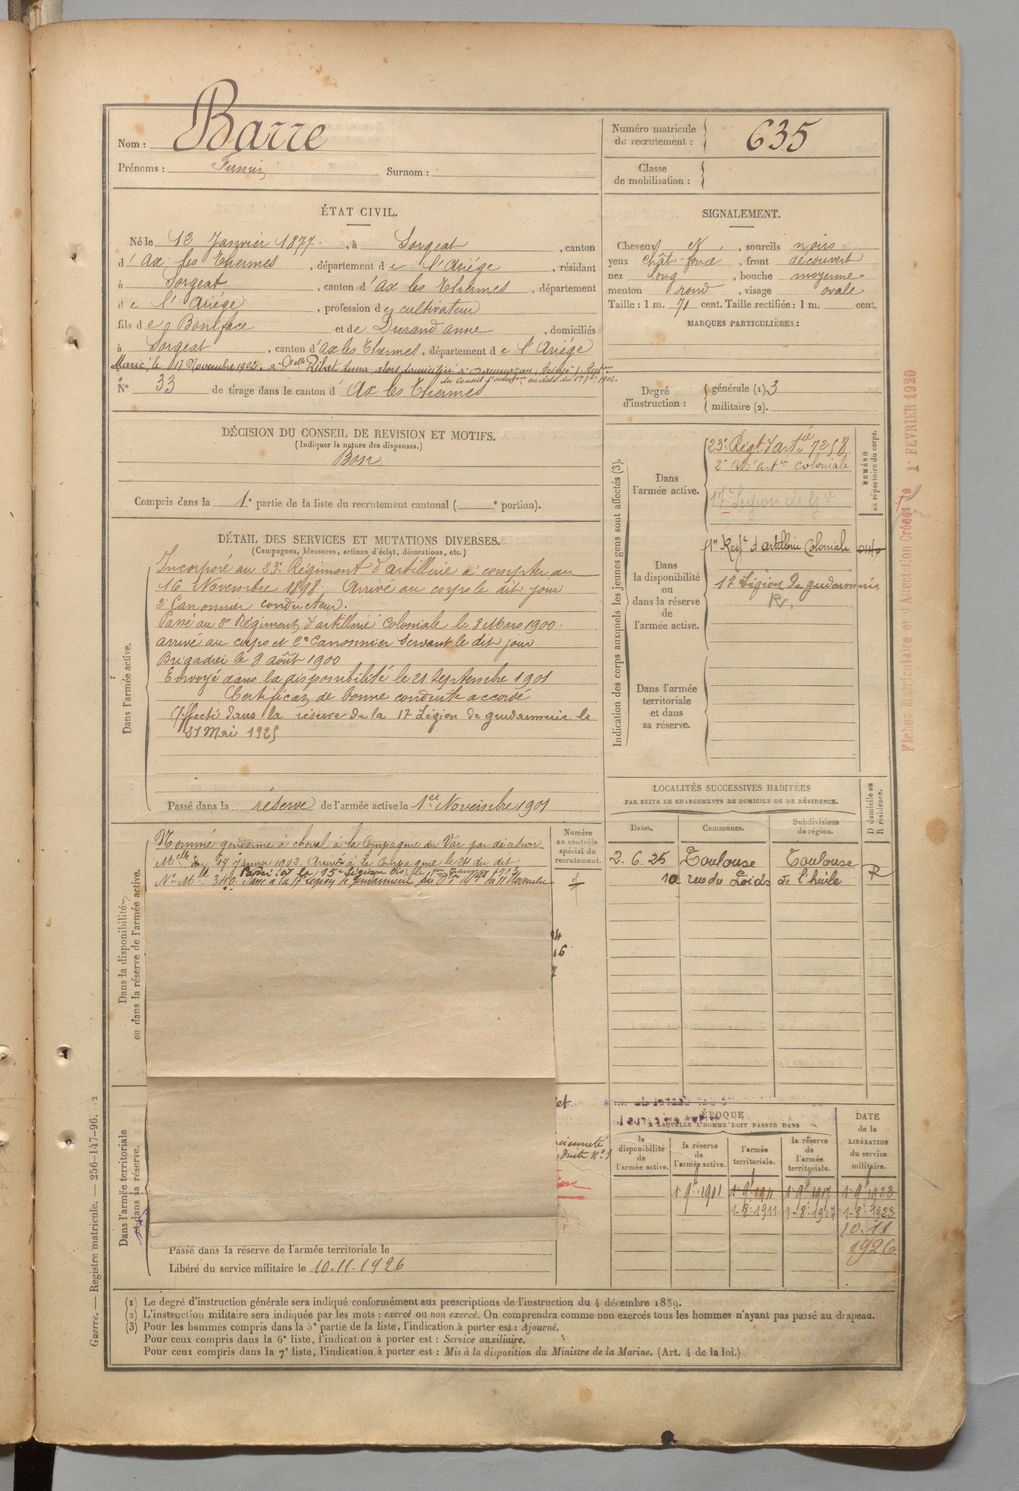 Nom : Barre
Prénoms : Firmin Surnom :
Numéro matricule du recrutement : 635
Classe de mobilisation :
ÉTAT CIVIL.
Né le 13 Janvier 1877, à Sorgeat, canton
d'Ax les Thermes, département de l'Ariége, résidant
à Sorgeat, canton d'Ax les Thermes, département
de l'Ariége, profession de cultivateur
fils de Boniface et de Durand anne, domiciliés
à Sorgeat, canton d'Ax les Thermes, département de l'Ariége
Marié le 11 Novembre 1902 à
N° 33 de tirage dans le canton d'Ax les Thermes
SIGNALEMENT.
Cheveux et , sourcils noirs
yeux chât-foncé, front découvert
nez long, bouche moyenne
menton rond, visage ovale
Taille : 1 m. 71 cent. Taille rectifiée : 1 m. cent.
MARQUES PARTICULIÈRES :
Degré d'instruction : générale (1). 3
militaire (2).
DÉCISION DU CONSEIL DE REVISION ET MOTIFS.
(Indiquer la nature des dispenses.)
Bon
Compris dans la 1e partie de la liste du recrutement cantonal ( e portion).
DÉTAIL DES SERVICES ET MUTATIONS DIVERSES.
(Campagnes, blessures, actions d'éclat, décorations, etc.)
Dans l'armée active.
Incorporé au 23e Régiment d'artillerie à compter du
16 Novembre 1898. Arrivé au corps le dit jour
2e Canonnier conducteur.
Passé au 2e Régiment d'artillerie Coloniale le 2 Mars 1900.
arrivé au corps et 2e Canonnier Servant le dit jour
Brigadier le 8 août 1900
Envoyé dans la disponibilité le 21 Septembre 1901
Certificat de bonne conduite accordé
Affecté dans la réserve de la 17 Légion de gendarmerie le
27 Mai 1925
Passé dans la réserve de l'armée active le 1er Novembre 1901
Indication des corps auxquels les jeunes gens sont affectés (3).
NUMÉRO au répertoire du corps.
Dans l'armée active.
23e Régt d'artie 7258
2e Rt d'artie coloniale
17 Légion de Gd
Dans la disponibilité ou dans la réserve de l'armée active.
1er Regt d'artillerie Coloniale
17 Légion de gendarmerie
R.
Dans l'armée territoriale et dans sa réserve.
Fiches Matriculaire et d'Affectation Créées le 1er FÉVRIER 1920
LOCALITÉS SUCCESSIVES HABITÉES
PAR SUITE DE CHANGEMENTS DE DOMICILE OU DE RÉSIDENCE.
Dates. Communes. Subdivisions de région. D domicile ou R résidence.
2.6.25 Toulouse Toulouse R
10 rue du Poids de l'huile
Dans la disponibilité ou dans la réserve de l'armée active.
Numéro au contrôle spécial du recrutement.
Nommé gendarme à cheval à la Compagne du Var par décision
Mlle du 14 Janvier 1902. Arrivé à la Compagnie le 24 du dit
Dans l'armée territoriale et dans sa réserve.
Passé dans la réserve de l'armée territoriale le
Libéré du service militaire le 10.11.1926
ÉPOQUE
À LAQUELLE L'HOMME DOIT PASSER DANS
la disponibilité de l'armée active. la réserve de l'armée active. l'armée territoriale. la réserve de l'armée territoriale.
DATE de la LIBÉRATION du service militaire.
1 9e 1901 1 9e 1911 1 9e 1917 1 9e 1923
1-8e 1911 1-8e 1917 1-8e 1923
10.11
1926
(1) Le degré d'instruction générale sera indiqué conformément aux prescriptions de l'instruction du 4 décembre 1889.
(2) L'instruction militaire sera indiquée par les mots : exercé ou non exercé. On comprendra comme non exercés tous les hommes n'ayant pas passé au drapeau.
(3) Pour les hommes compris dans la 5e partie de la liste, l'indication à porter est : Ajourné.
Pour ceux compris dans la 6e liste, l'indication à porter est : Service auxiliaire.
Pour ceux compris dans la 7e liste, l'indication à porter est : Mis à la disposition du Ministre de la Marine. (Art. 4 de la loi.)
Guerre. — Registre matricule. — 256-147-96.